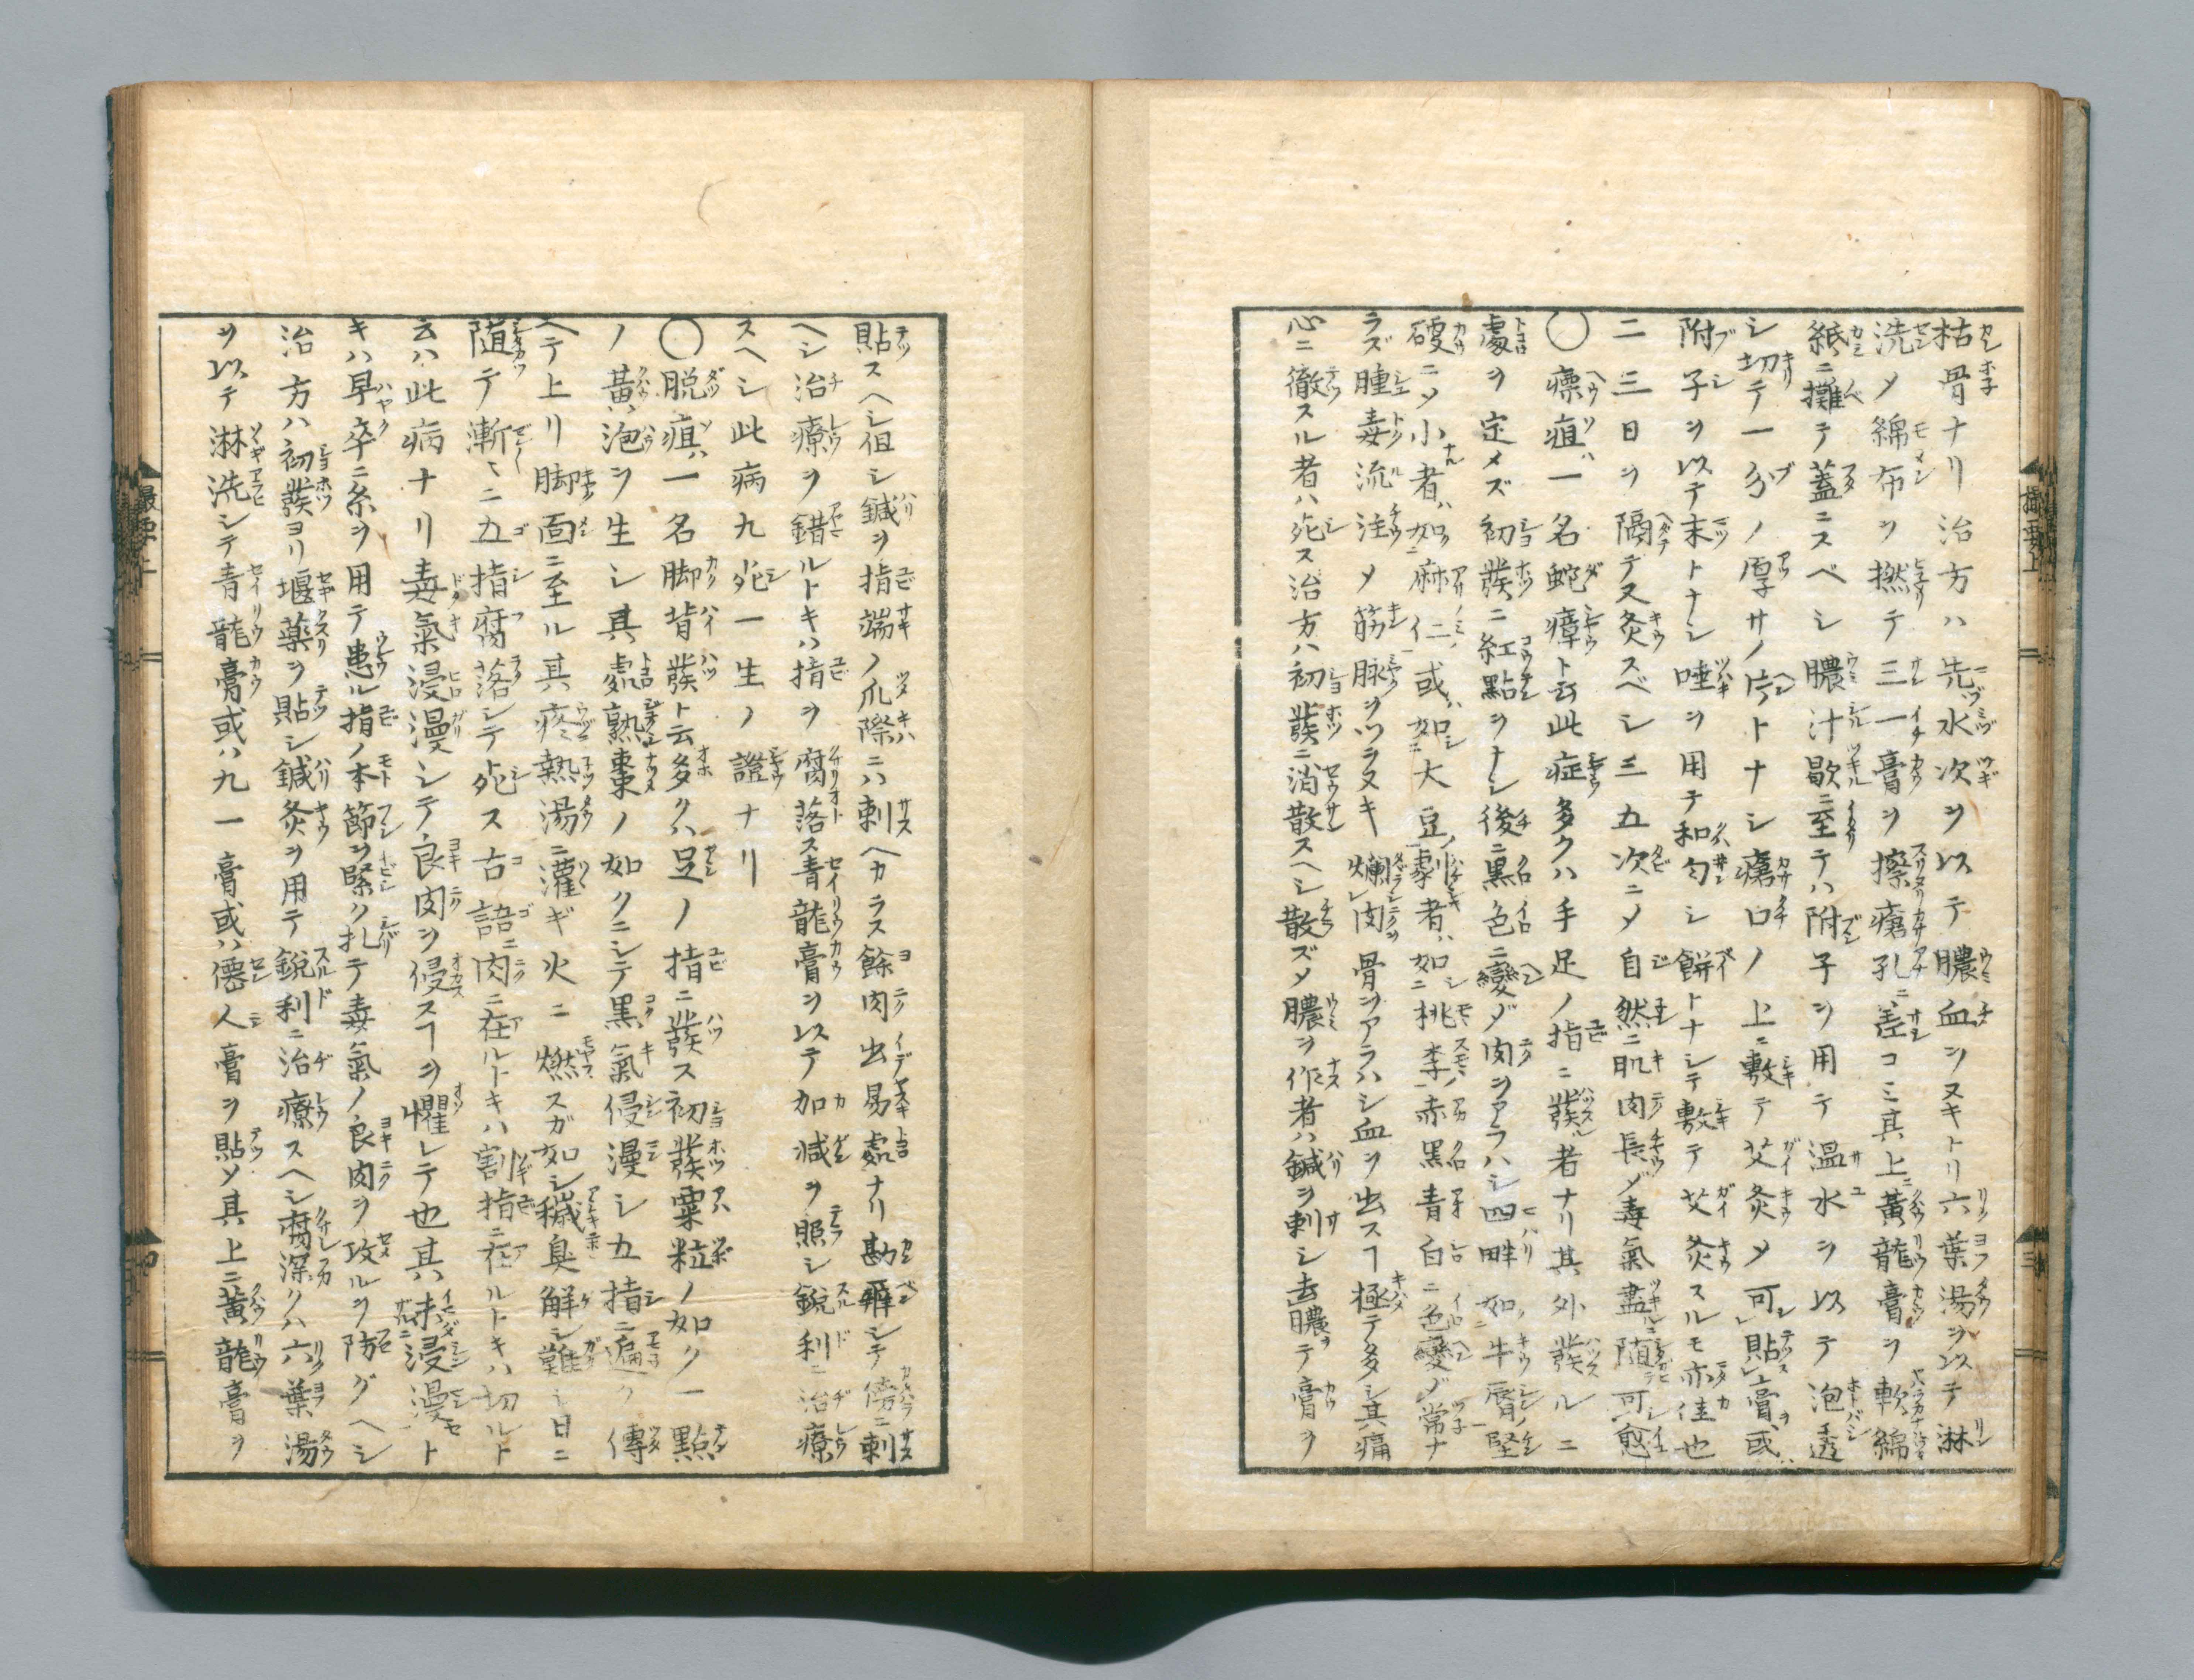 枯骨ナリ治方ハ先水次ヲ以テ膿血ヲヌキトリ六葉湯ヲ以テ淋
洗〆綿布ヲ撚テ三一膏ヲ擦瘡孔ニ差コミ其上ニ黃龍膏ヲ軟綿
紙ニ攤テ蓋ニスベシ膿汁歇ニ至テハ附子ヲ用テ温水ヲ以テ泡透
シ切テ一分ノ厚サノ片トナシ瘡口ノ上ニ敷テ艾灸〆可貼上膏ヲ或ハ
附子ヲ以テ末トナシ唾ヲ用テ和匀シ餅トナシテ敷テ艾灸スルモ亦佳也
二三日ヲ隔テ又灸スベシ三五次ニ〆自然ニ肌肉長〆毒氣盡ルニ随テ可愈
〇瘭疽ハ一名蛇瘴ト云此症多クハ手足ノ指ニ発スル者ナリ其外発ルニ
處ヲ定メズ初発ニ紅點ヲナシ後ニ黒色ニ變〆肉ヲアラハシ四畔如牛唇ノ堅
硬ニ〆小者ハ如麻仁或ハ如大豆劇者ハ如桃李赤黒青白ニ色變〆常ナ
ラズ腫毒流注〆筋脉ヲツラヌキ爛肉骨ヲアラハシ血ヲ出スヿ極テ多シ其痛
心ニ徹スル者ハ死ス治方ハ初発ニ消散スヘシ散ズ〆膿ヲ作者ハ鍼ヲ刺シ去膿ヲテ膏ヲ
貼スヘシ但シ鍼ヲ指端ノ爪際ニハ刺ヘカラス餘肉出易處ナリ勘辨シテ傍ニ刺
ヘシ治療ヲ錯ルトキハ指ヲ腐落ス青龍膏ヲ以テ加減ヲ照シ鋭利ニ治療
スヘシ此病九死一生ノ證ナリ
〇脱疽ハ一名脚背発ト云多クハ足ノ指ニ発ス初発粟粒ノ如ク一點
ノ黃泡ヲ生シ其處熟棗ノ如クニシテ黒氣侵漫シ五指ニ遍ク傳
ヘテ上リ脚面ニ至ル其疼熱湯ニ灌ギ火ニ燃スガ如シ穢臭解シ難シ日ニ
随テ漸々ニ五指腐落シテ死ス古語ニ肉ニ在ルトキハ割指ニ在ルトキハ切ルト
云ハ此病ナリ毒氣浸漫シテ良肉ヲ侵スヿヲ懼レテ也其ハ未浸漫セト
キハ早卒ニ糸ヲ用テ患ル指ノ本節ヲ緊ク扎テ毒氣ノ良肉ヲ攻ルヲ防グヘシ
治方ハ初発ヨリ堰薬ヲ貼シ鍼灸ヲ用テ鋭利ニ治療スヘシ腐深クハ六葉湯
ヲ以テ淋洗シテ青龍膏或ハ九一膏或ハ僊人膏ヲ貼〆其上ニ黃龍膏ヲ